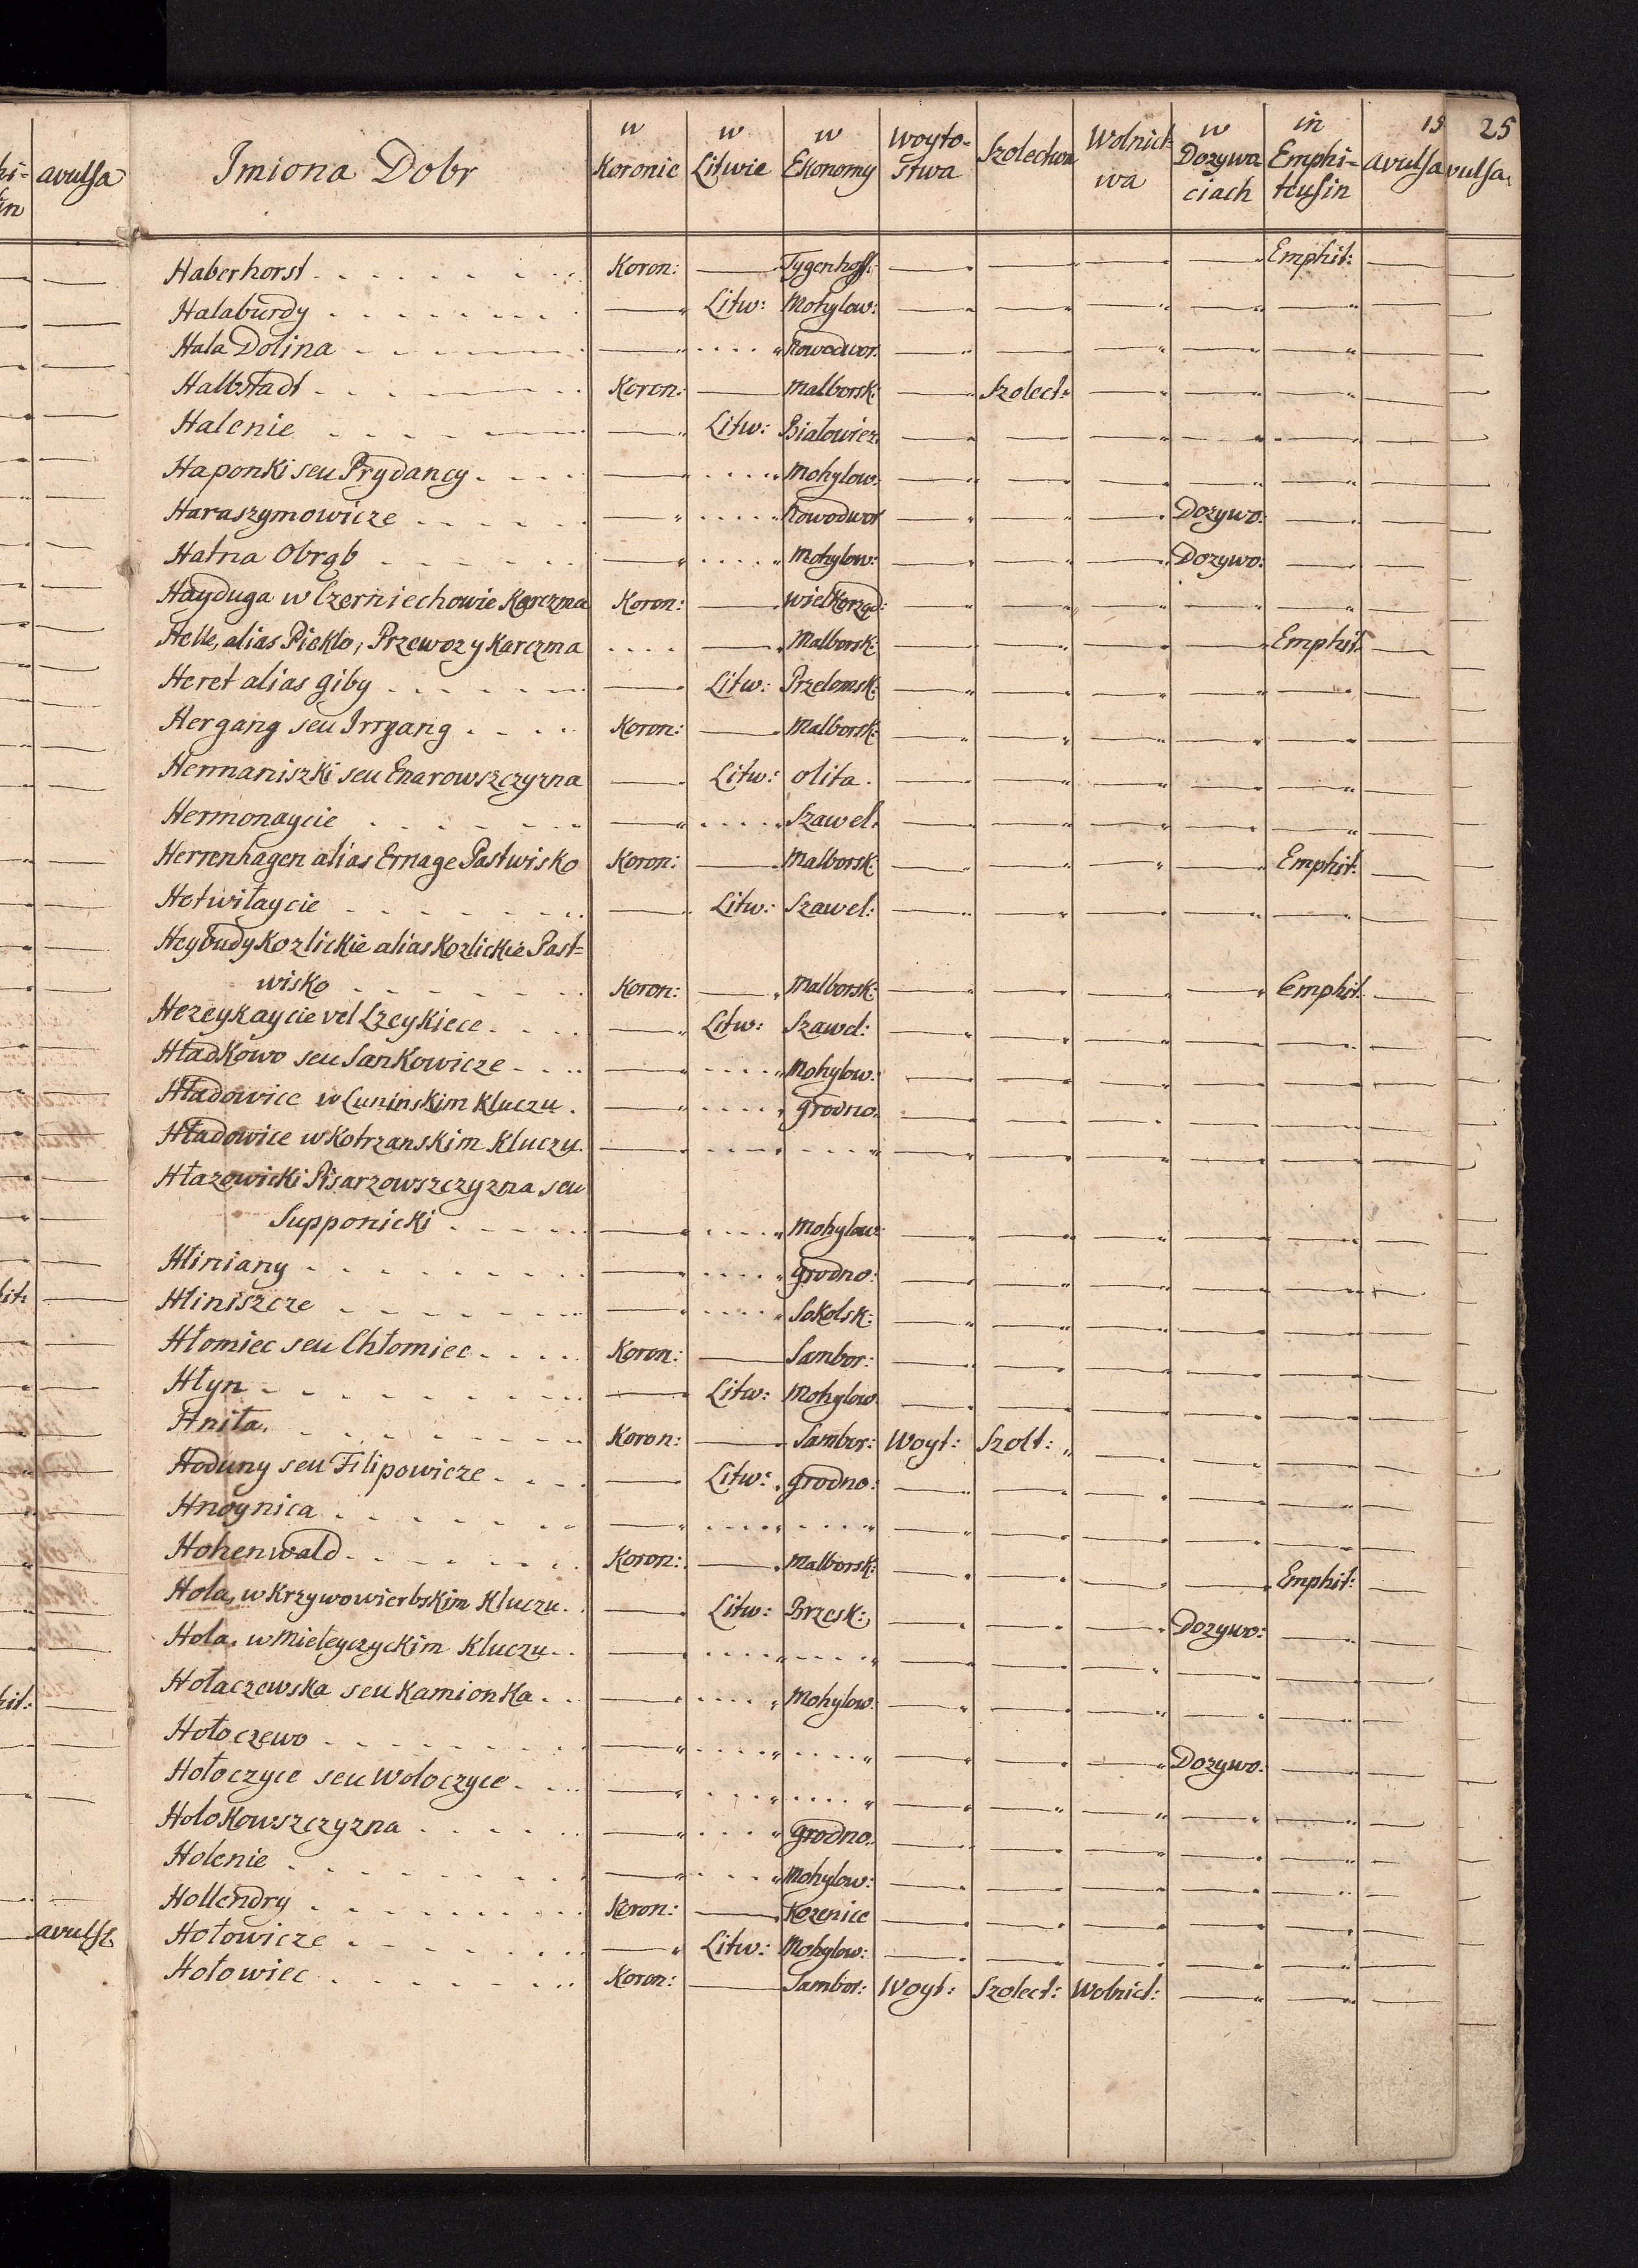 15 25
Imiona Dobr | w Koronie | w Litwie | w Ekonomy | Woyto-stwa | Szolectwa | Wolnict-wa | w Dozywa ciach | in Emphi-teusin | avulsa
avulsa
vulsa
Haberhorst Koron: Tygenhoff: Emphit:
Halaburdy Litw: Mohylow:
Hala Dolina Nowodwor.
Halbstadt Koron: Malborsk: Szolect:
Halenie Litw: Białowiez
Haponki seu Prydancy Mohylow.
Haraszymowicze Nowodwor Dozywo:
Hatna Obrąb Mohylow: Dozywo:
Hayduga w Czerniechowie Karczma Koron: Wielkorząd:
Helle, alias Piekło, Przewoz y Karczma Malborsk: Emphit.
Heret alias Giby Litw: Przelomsk:
Hergang seu Irrgang Koron: Malborsk:
Hermaniszki seu Enarowszczyzna Litw: Olita.
Hermonaycie Szawel:
Herrenhagen alias Ernage Pastwisko Koron: Malborsk: Emphit:
Hetwiłaycie Litw: Szawel:
Heybudy Kozlickie alias Kozlickie Past=
wisko Koron: Malborsk: Emphit.
Hezeykaycie vel Ezeykiece Litw: Szawel:
Hładkowo seu Sankowicze Mohylow:
Hładowice w Luninskim Kluczu. Grodno.
Hładowice w Kotrzanskim Kluczu.
Hłazowicki Pisarzowszczyzna seu
Supponicki Mohylow:
Hliniany Grodno:
Hliniszcze Sokolsk:
Hłomiec seu Chłomiec Koron: Sambor:
Hłyn Litw: Mohylow
Hniła. Koron: Sambor: Woyt: Szolt:
Hoduny seu Filipowicze Litw: Grodno:
Hnoynica
Hohenwald Koron: Malborsk: Emphit:
Hola, w Krzywowierbskim Kluczu. Litw: Brzesk: Dozywo:
Hola. w Mieleyczyckim Kluczu
Hołaczewska seu Kamionka Mohylow.
Hołoczewo Dozywo.
Hołoczyce seu Wołoczyce
Holokowszczyzna Grodno.
Holenie Mohylow:
Hollendry Koron: Kozenice
Hołowicze Litw: Mohylow:
Hołowiec Koron: Sambor: Woyt: Szolect: Wolnict:
avulsa